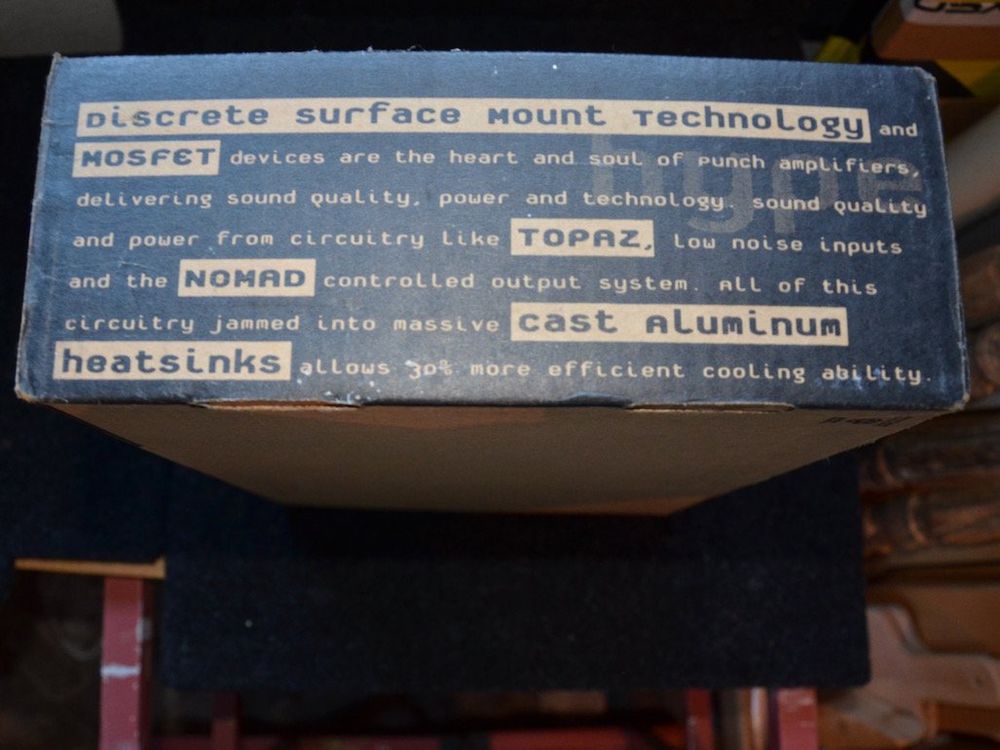 Discrete surface Mount Technology and
MOSFET devices are the heart and soul of Punch amplifiers,
delivering sound quality, power and technology. sound quality
and power from circuitry like TOPAZ, low noise inputs
and the NOMAD controlled output system. All of this
circuitry jammed into massive cast Aluminum
heatsinks allows 30% more efficient cooling ability.
hype
USA